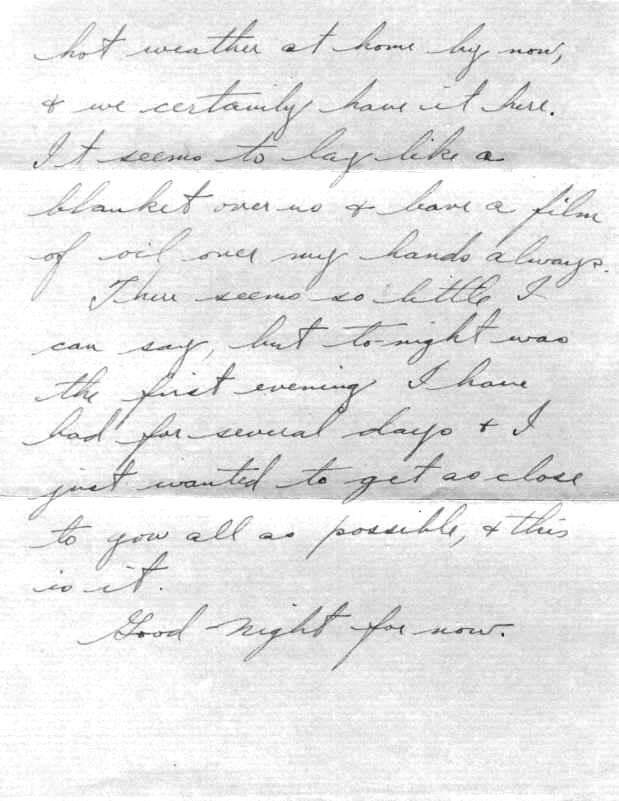 hot weather at home by now,
& we certainly have it here.
It seems to lay like a
blanket over us & leave a film
of oil over my hands always.
There seems so little I
can say, but to-night was
the first evening I have
had for several days & I
just wanted to get as close
to you all as possible, & this
is it.
Good night for now.